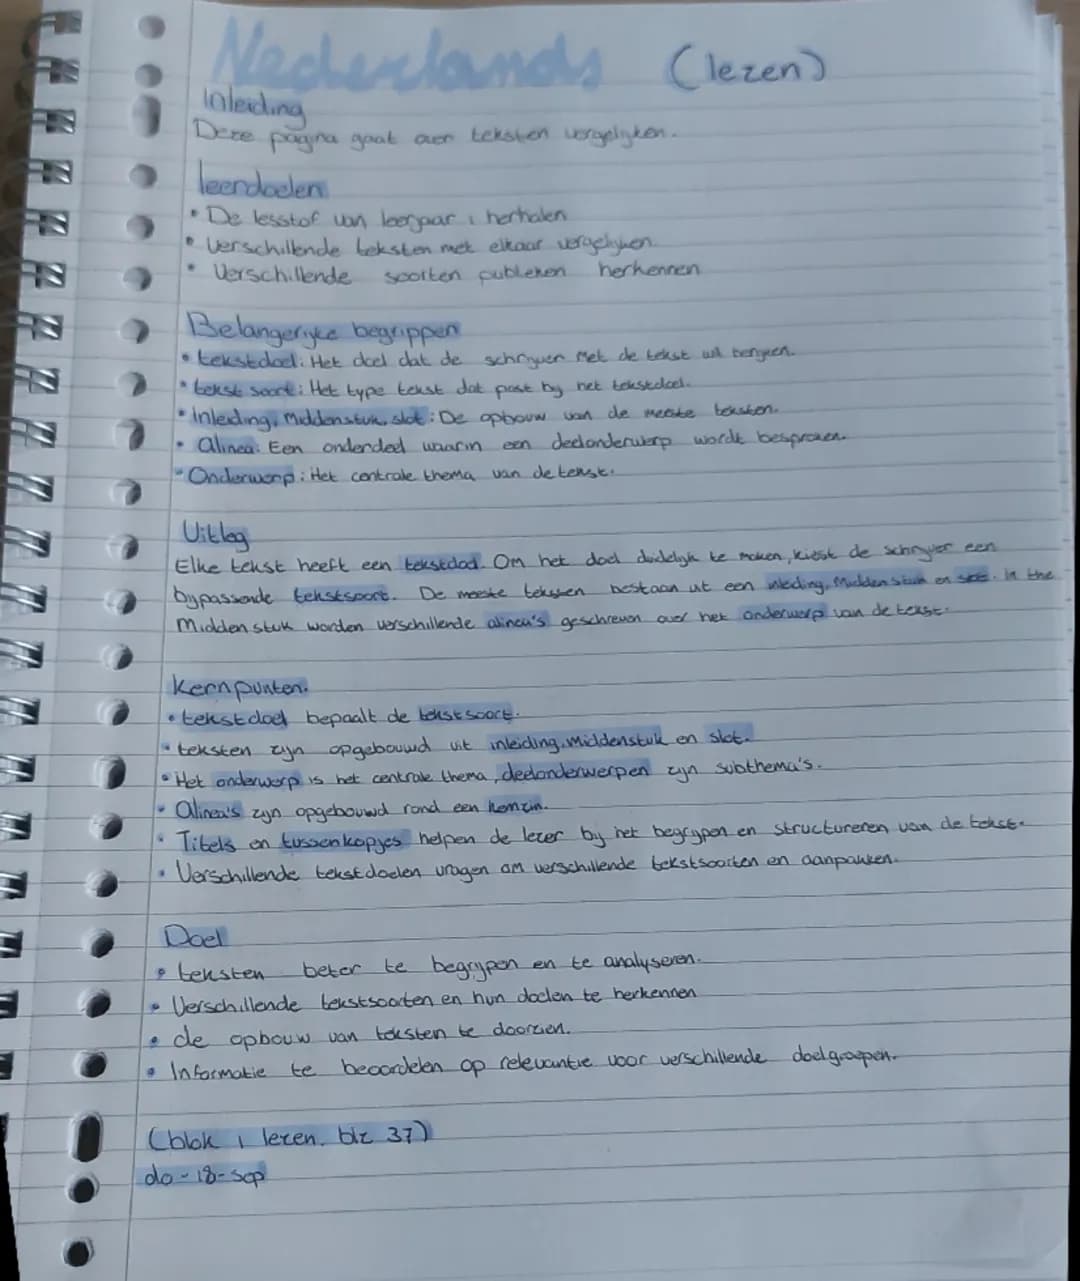 Nederlands (lezen)
Inleiding
Deze pagina gaat over teksten vergelijken.
leerdoelen
• De lesstof van leerjaar 1 herhalen
• Verschillende teksten met elkaar vergelijken.
• Verschillende soorten publieken herkennen
Belangerijke begrippen
• tekstdoel: Het doel dat de schrijver met de tekst wil bereiken.
• tekst soort: Het type tekst dat past bij het tekstdoel.
• Inleiding, middenstuk, slot: De opbouw van de meeste teksten.
• alinea: Een onderdeel waarin een deelonderwerp wordt besproken.
• Onderwerp: Het centrale thema van de tekst.
Uitleg
Elke tekst heeft een tekstdoel. Om het doel duidelijk te maken, kiest de schrijver een
bijpassende tekstsoort. De meeste teksten bestaan uit een inleiding, Midden stuk en slot. in the
Midden stuk worden verschillende alinea's geschreven over het onderwerp van de tekst.
Kernpunten.
• tekstdoel bepaalt de tekstsoort.
• teksten zijn opgebouwd uit inleiding, middenstuk en slot.
• Het onderwerp is het centrale thema, deelonderwerpen zijn subthema's.
• Alinea's zijn opgebouwd rond een kernzin.
• Titels en tussenkopjes helpen de lezer bij het begrijpen en structureren van de tekst.
• Verschillende tekstdoelen vragen om verschillende tekstsoorten en aanpakken.
Doel
• teksten beter te begrijpen en te analyseren.
• Verschillende tekstsoorten en hun doelen te herkennen
• de opbouw van teksten te doorzien.
• Informatie te beoordelen op relevantie voor verschillende doelgroepen.
(blok 1 lezen. blz 37)
do-18-sep